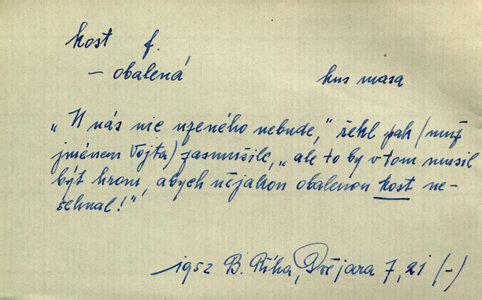 kost f.
– obalená kus masa
„U nás nic uzeného nebude,“ řekl pak (muž
jménem Vojta) zasmušile, „ale to by v tom musil
být hrom, abych nějakou obalenou kost ne-
sehnal!“
1952 B. Říha, Dvě jara 7, 21 (–)